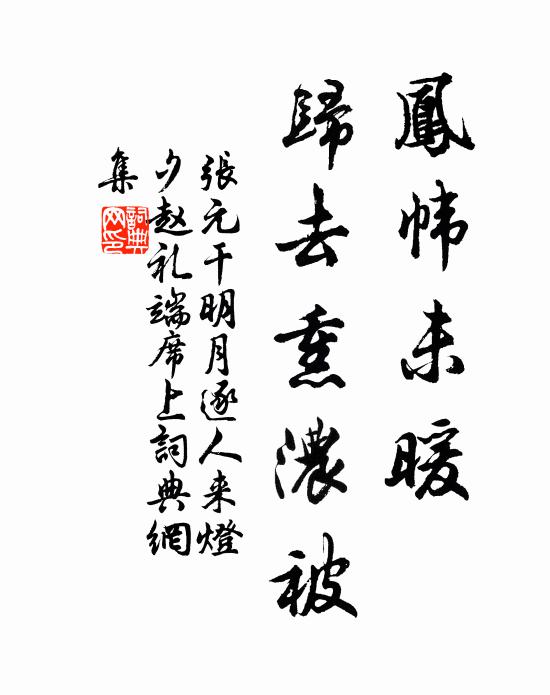 鳳帏未暖
歸去熏濃被
張元干明月逐人来燈
夕赵礼端席上詞典網
集
詞典
网印